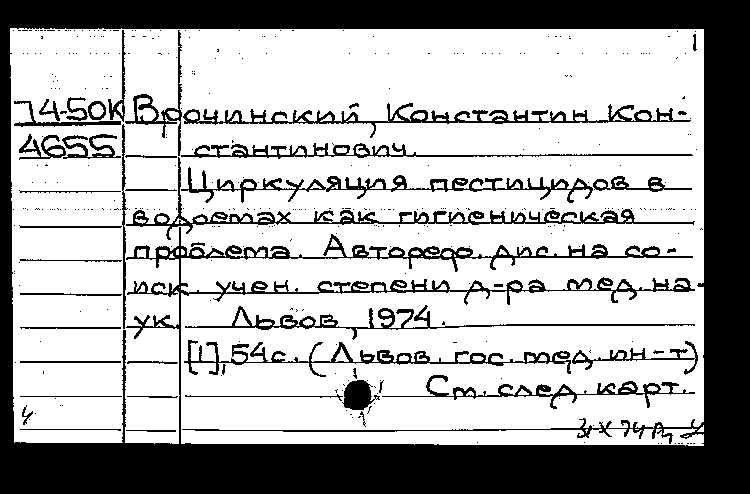 1
74-50К Врочинский, Константин Кон-
4655 стантинович.
Циркуляция пестицидов в
водоемах как гигиеническая
проблема. Автореф. дис. на со-
иск. учен. степени д-ра мед. на-
ук. Львов, 1974.
[1], 54с. (Львов. гос. мед. ин-т)
См. след. карт.